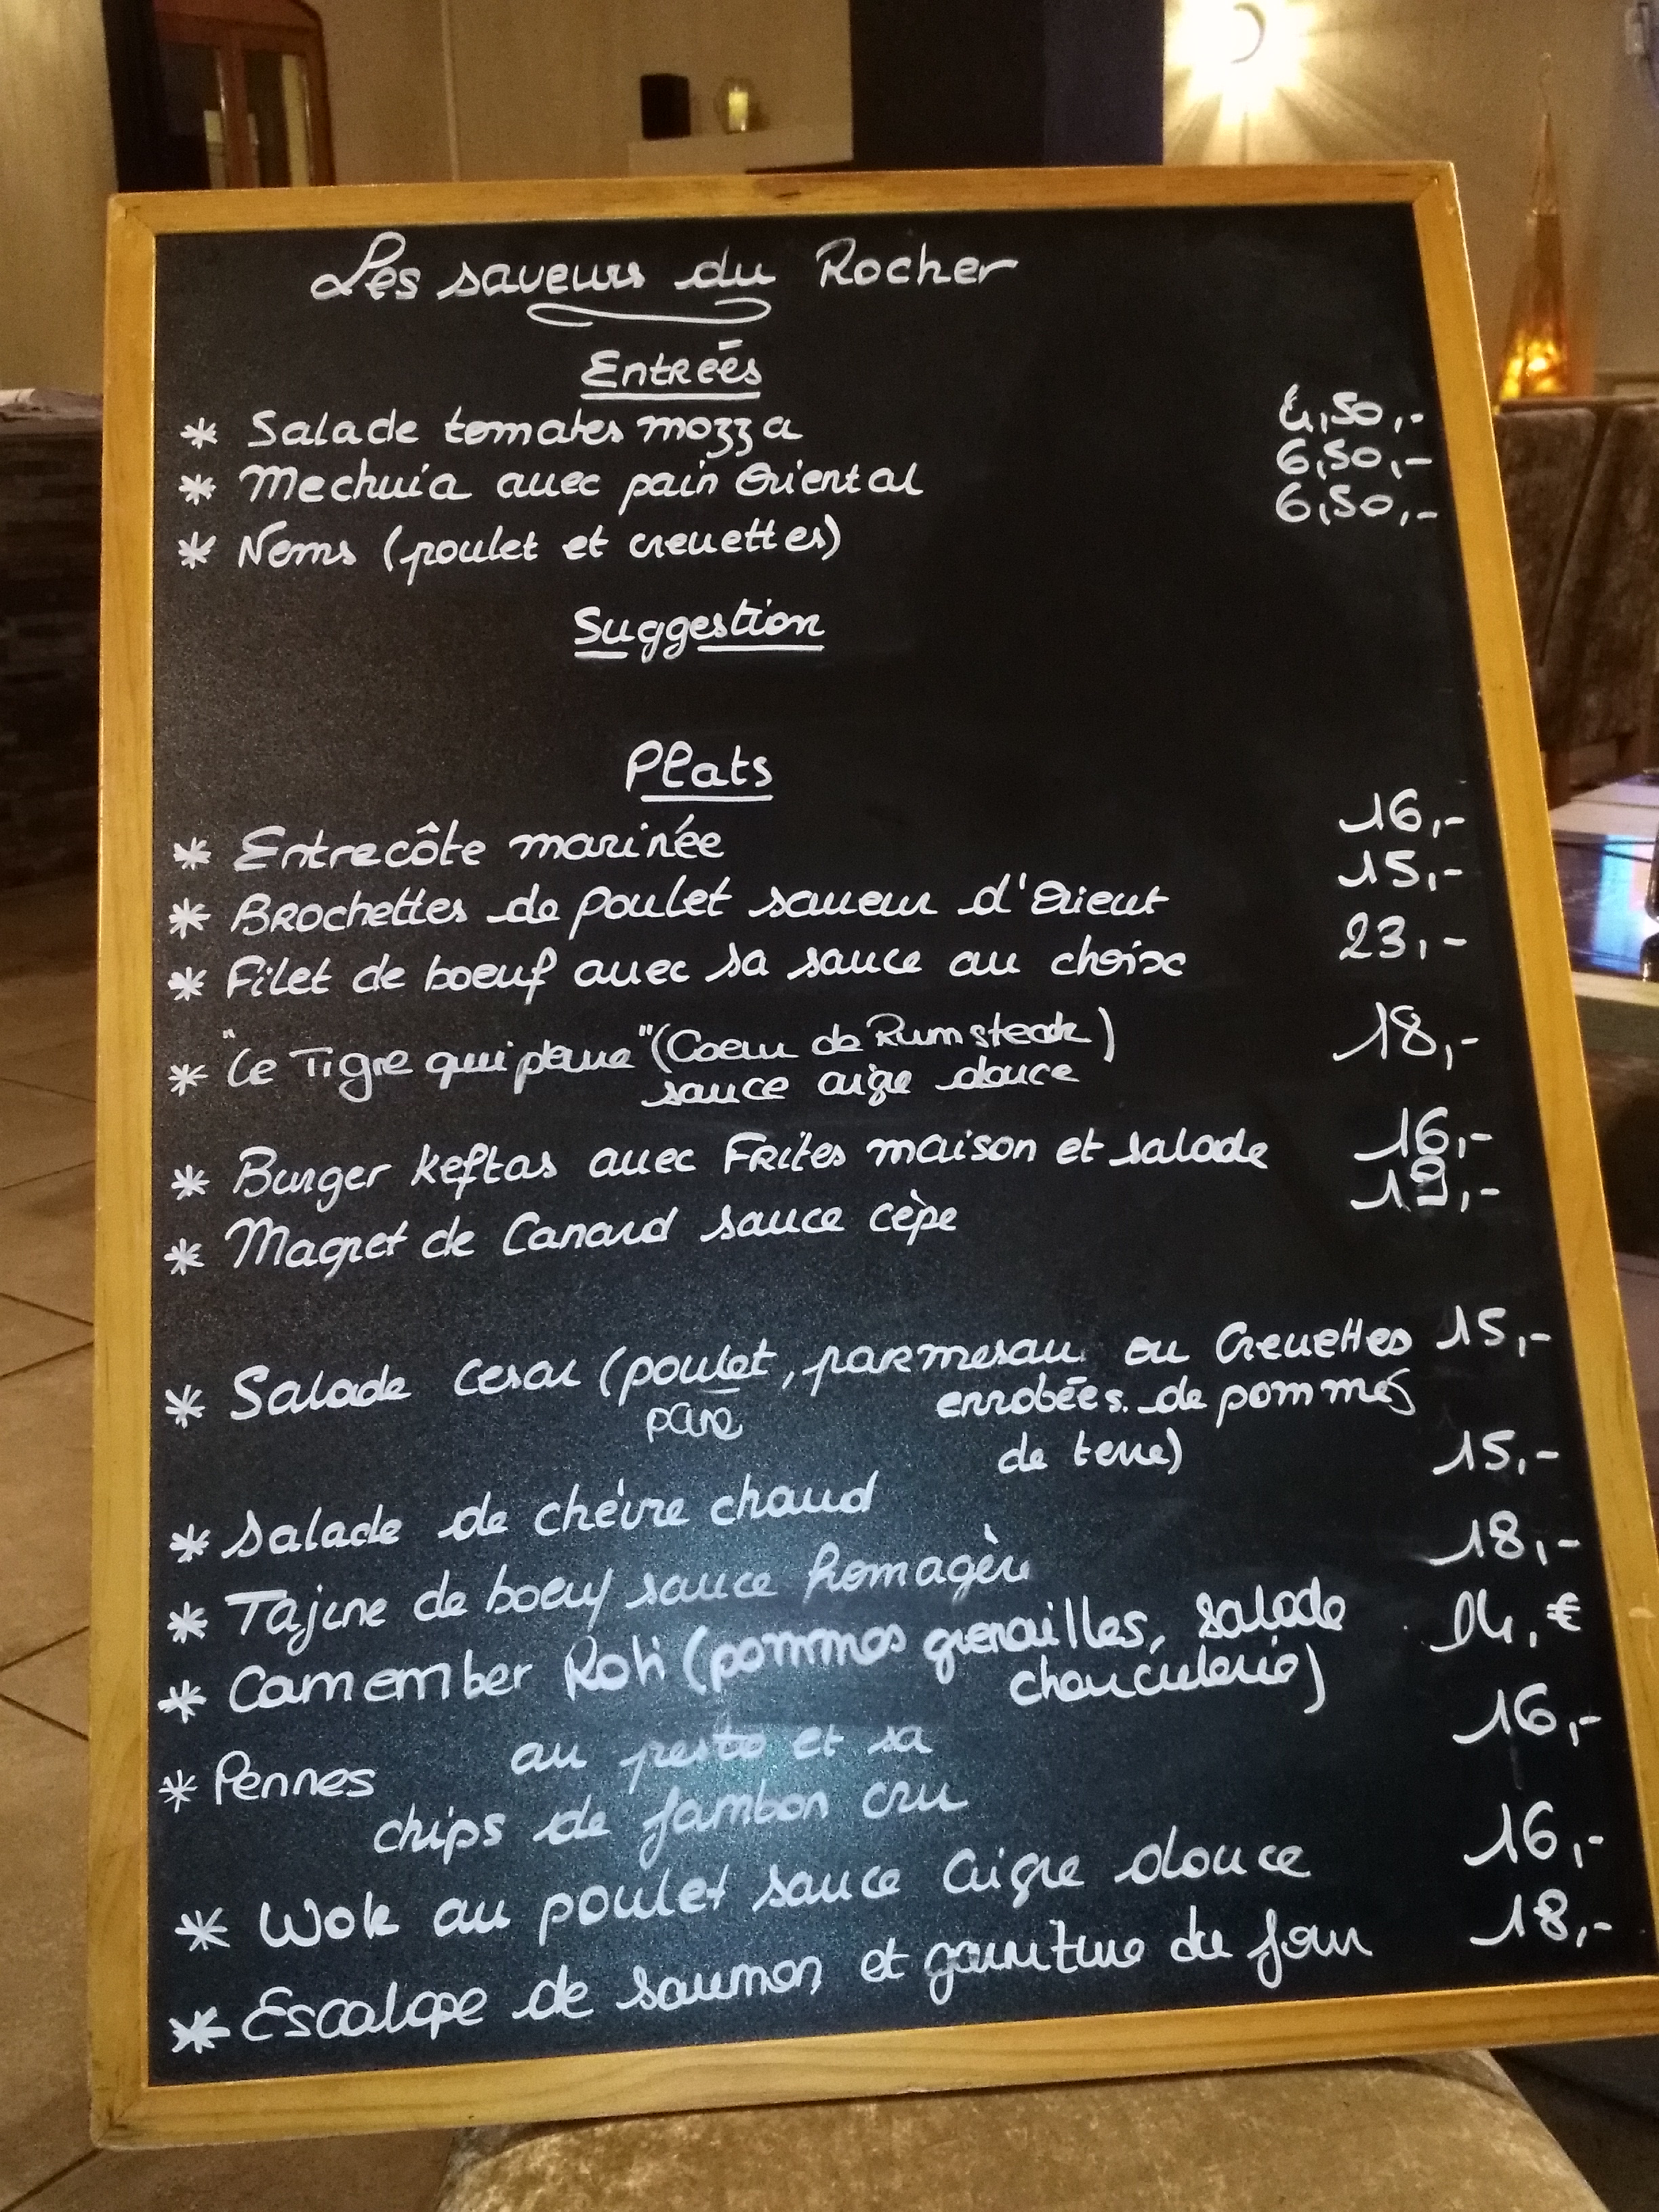 Les saveurs du Rocher
Entrées
* Salade tomates mozza 4,50,-
* Mechuia avec pain Oriental 6,50,-
* Nems (poulet et crevettes) 6,50,-
Suggestion
Plats
* Entrecôte marinée 16,-
* Brochettes de poulet saveur d'Orient 15,-
* Filet de boeuf avec sa sauce au choix 23,-
* "Le Tigre qui pleure" (Coeur de Rumsteack) 18,-
sauce aigre douce
* Burger keftas avec Frites maison et salade 16,-
* Magret de Canard sauce cèpe
* Salade Cesar (poulet, parmesan ou Crevettes 15,-
pané enrobées de pommes
de terre)
* Salade de chèvre chaud 15,-
* Tajine de boeuf sauce 18,-
* Camember Roti (pommes grenailles, salade 14,€
charcuterie)
* Pennes au pesto et sa 16,-
chips de jambon cru
* Wok au poulet sauce aigre douce 16,-
* Escalope de saumon et garniture du jour 18,-